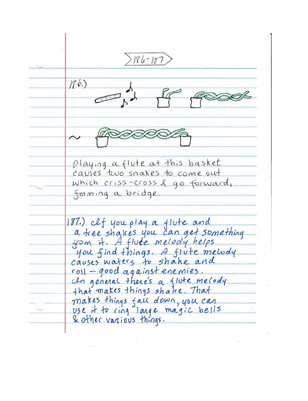 186-187
186.)
Playing a flute at this basket
causes two snakes to come out
which criss-cross & go forward,
forming a bridge.
187.) If you play a flute and
a tree shakes you can get something
from it. A flute melody helps
you find things. A flute melody
causes waters to shake and
roil - good against enemies.
In general there's a flute melody
that makes things shake. That
makes things fall down, you can
use it to ring large magic bells
& other various things.